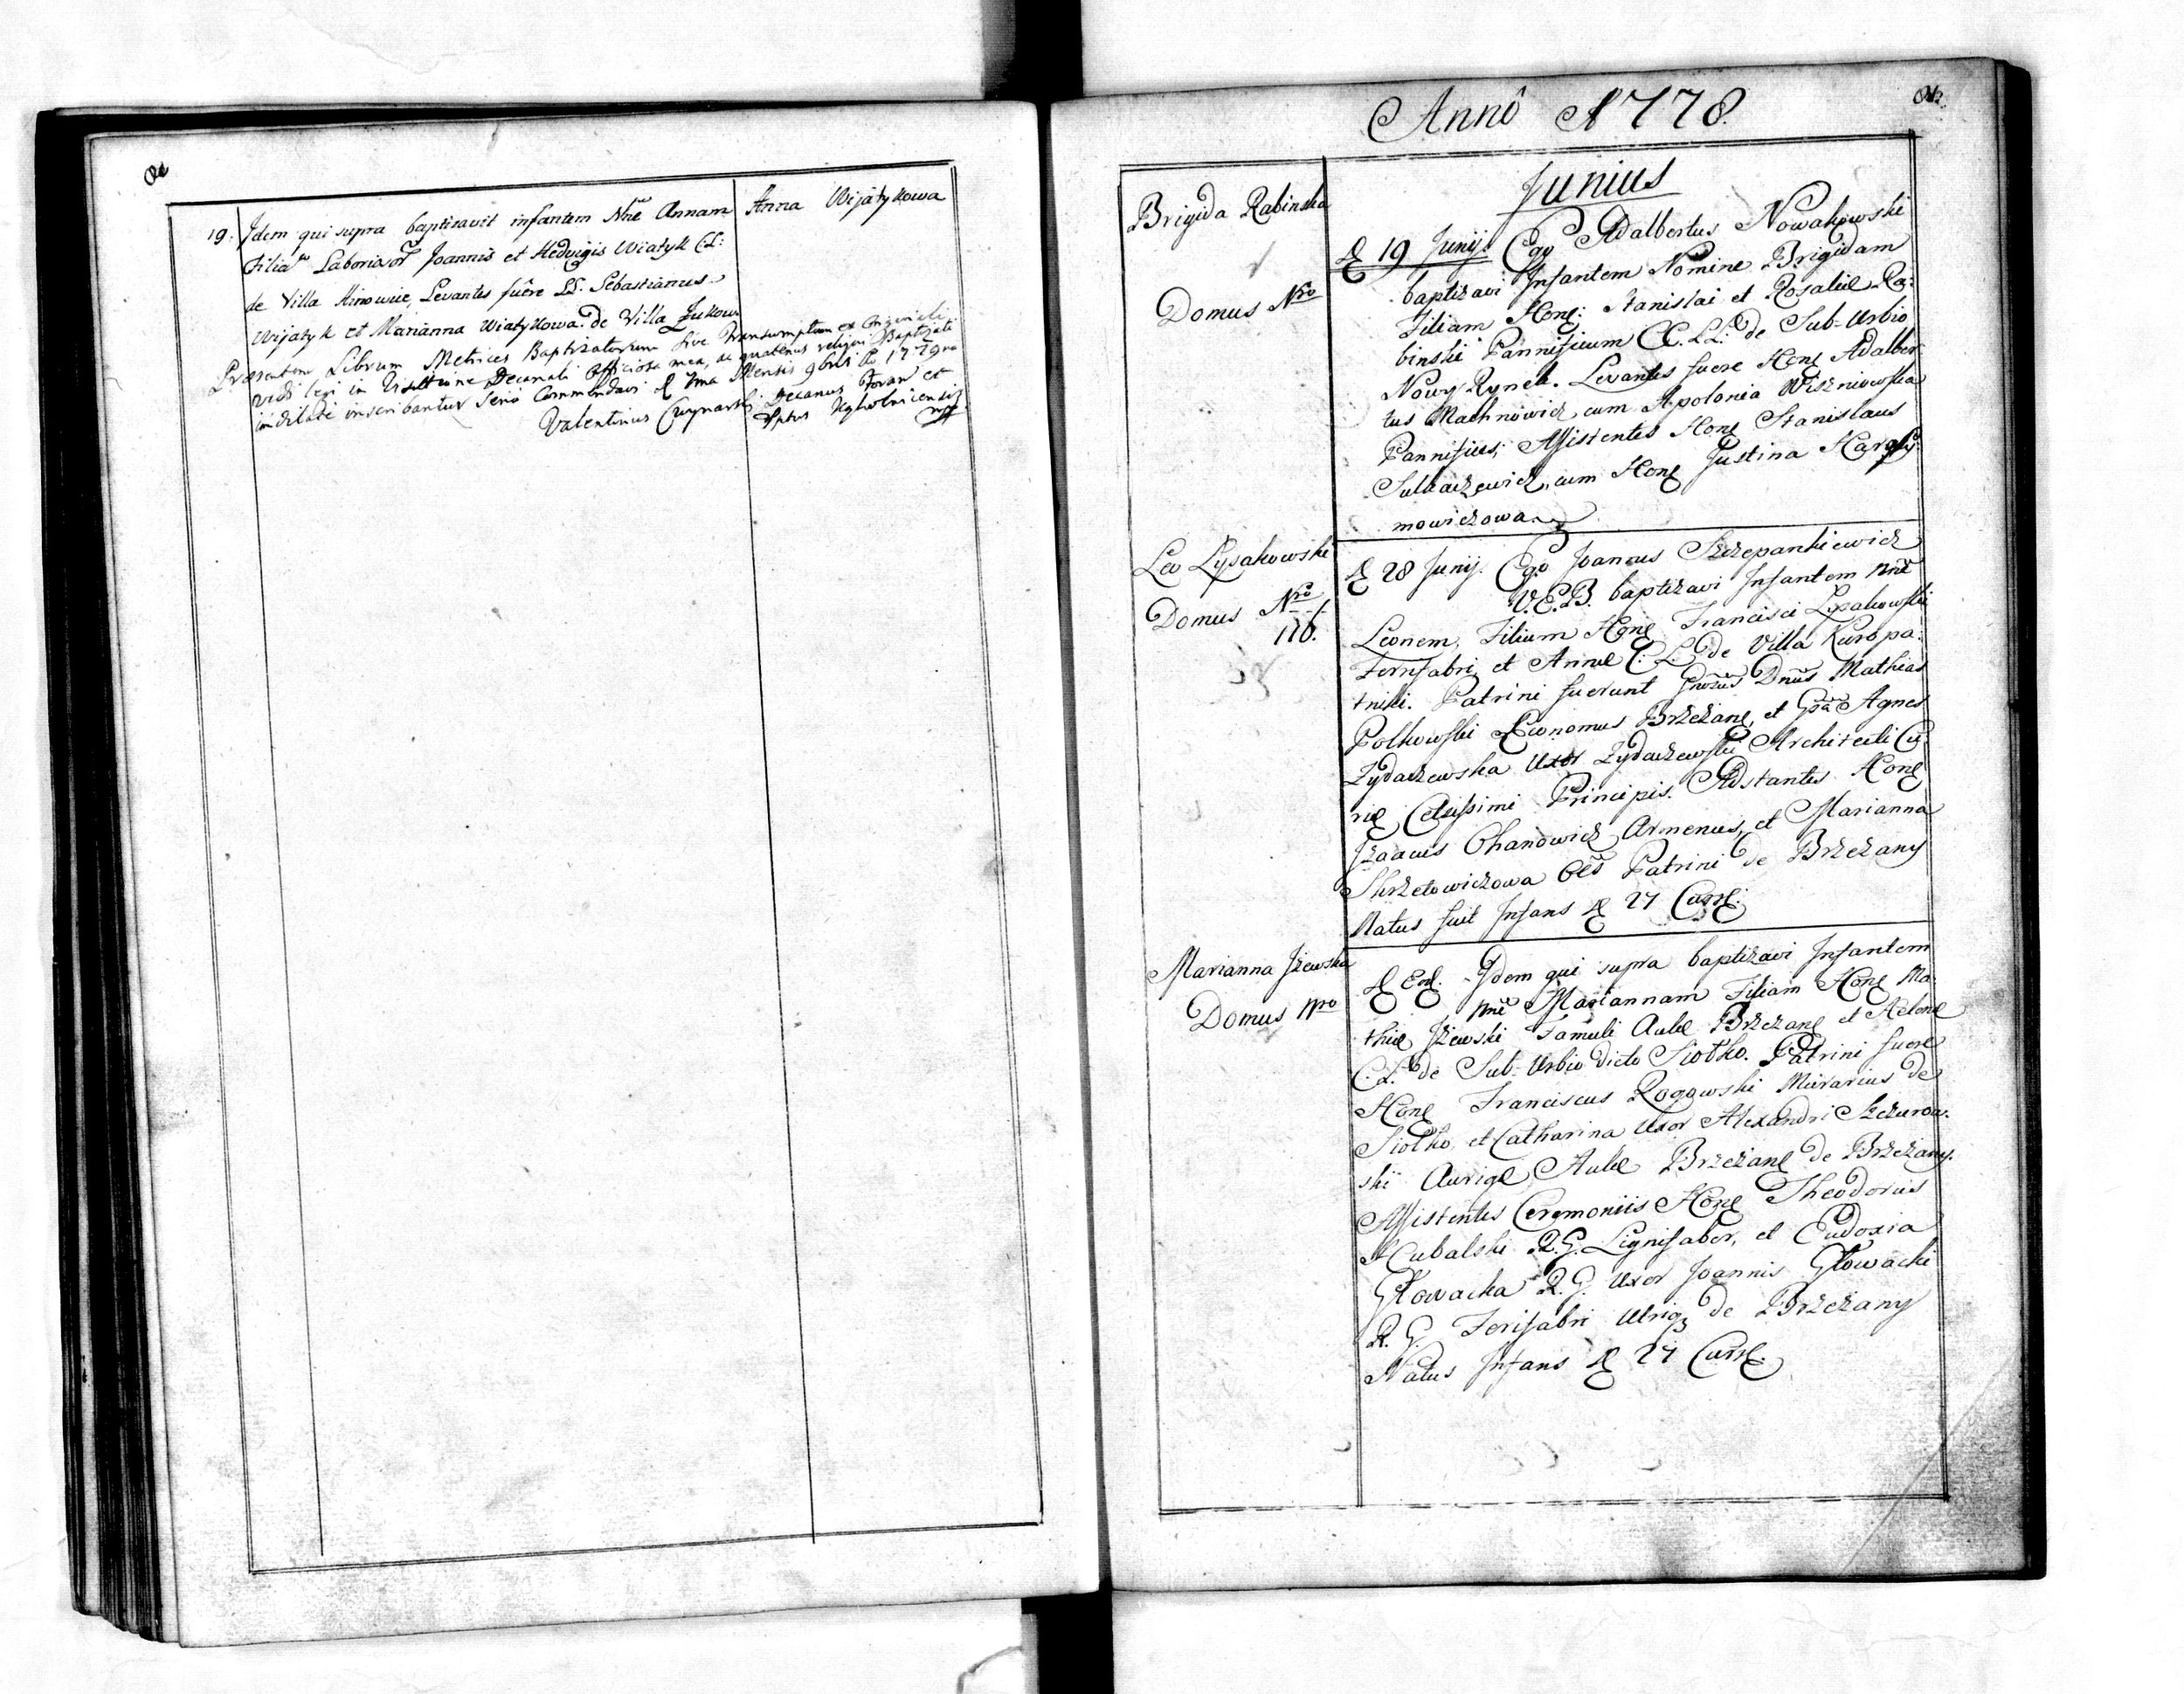 19. Idem qui supra baptizavit infantem Nne Annam
Filiam Laboriosor Joannis et Hedvigis Wiatyk C:L:
de Villa Hinowice, Levantes fuêre LL. Sebastianus
Wijatyk et Marianna Wiatykowa de Villa Żukow
Anna Wijatykowa
Præsentem Librum Metrices Baptizatorum sive Transumptum ex Originali
vidi legi in Visitatione Decanali Officiosa mea, ac quatenus reliqui Baptizati
indilate inscribantur serio Commendavi d 7ma Mensis 9bris Ao 1779no
Valentinus Decanus Foran et
Pptus
mpp
Annô 1778
Junius
Brigida Rabinska
Domus Nro
D 19 Junij. Ego Adalbertus Nowakowski
baptizavi Infantem Nomine Brigidam
Filiam Hone: Stanislai et Rosaliæ Ra:
binski Pannificum CC. LL. de Sub-Urbio
Nowy Rynek. Levantes fuere Hone Adalber
tus Machnowicz cum Apolonia Wiszniowska
Pannifices; Assistentes Hone Stanislaus
Sulkaczewicz, cum Hone Justina Harasy:
mowiczowa
Leo Lysakowski
Domus Nro
116.
D 28 Junij. Ego Joannes Szczepankiewicz
V.E.B. baptizavi Infantem Nne
Leonem, Filium Hone Francisci Lysakowski
Ferrifabri et Annæ C: L: de Villa Kuropa:
tniki. Patrini fuerunt Gnosus Dnus Mathias
Polkowski Economus Brzeżane, et Gsa Agnes
Zydaczewska Uxor Zydaczewski Architecti Cu:
riæ Celsissimi Principis. Adstantes Hone
Izaacus Ohanowicz Armenus, et Marianna
Skrzetowiczowa Oes Patrini de Brzeżany
Natus fuit Infans d 27 Curre.
Marianna Iżewska
Domus Nro
D Eod. Idem qui supra baptizavi Infantem
Nne Mariannam Filiam Hone Ma:
thiæ Iżewski Famuli Aulæ Brzeżane et Helenæ
C: L: de Sub-Urbio dicto Siolko. Patrini fuere
Hone Franciscus Rogowski Murarius de
Siolko et Catharina Uxor Alexandri Szczurow:
ski Aurigæ Aulæ Brzeżane de Brzeżany.
Assistentes Ceremoniis Hone Theodorus
Kubalski R.G. Lignifaber, et Eudoxia
Głowacka R.G. Uxor Joannis Głowacki
R. G. Ferifabri Utriq de Brzeżany
Natus Infans d 27 Curre.